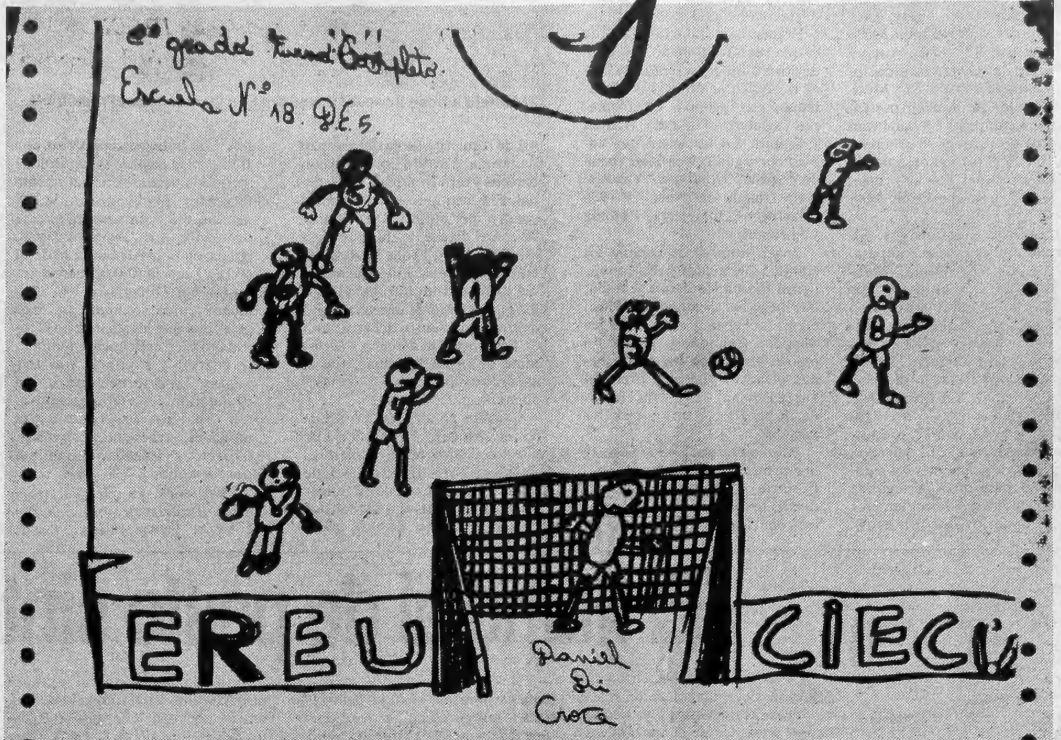 grado Turno "Completo".
Escuela Nº 18. D.E. 5.
5
1
3
8
4
EREU
Daniel
Di
Croce